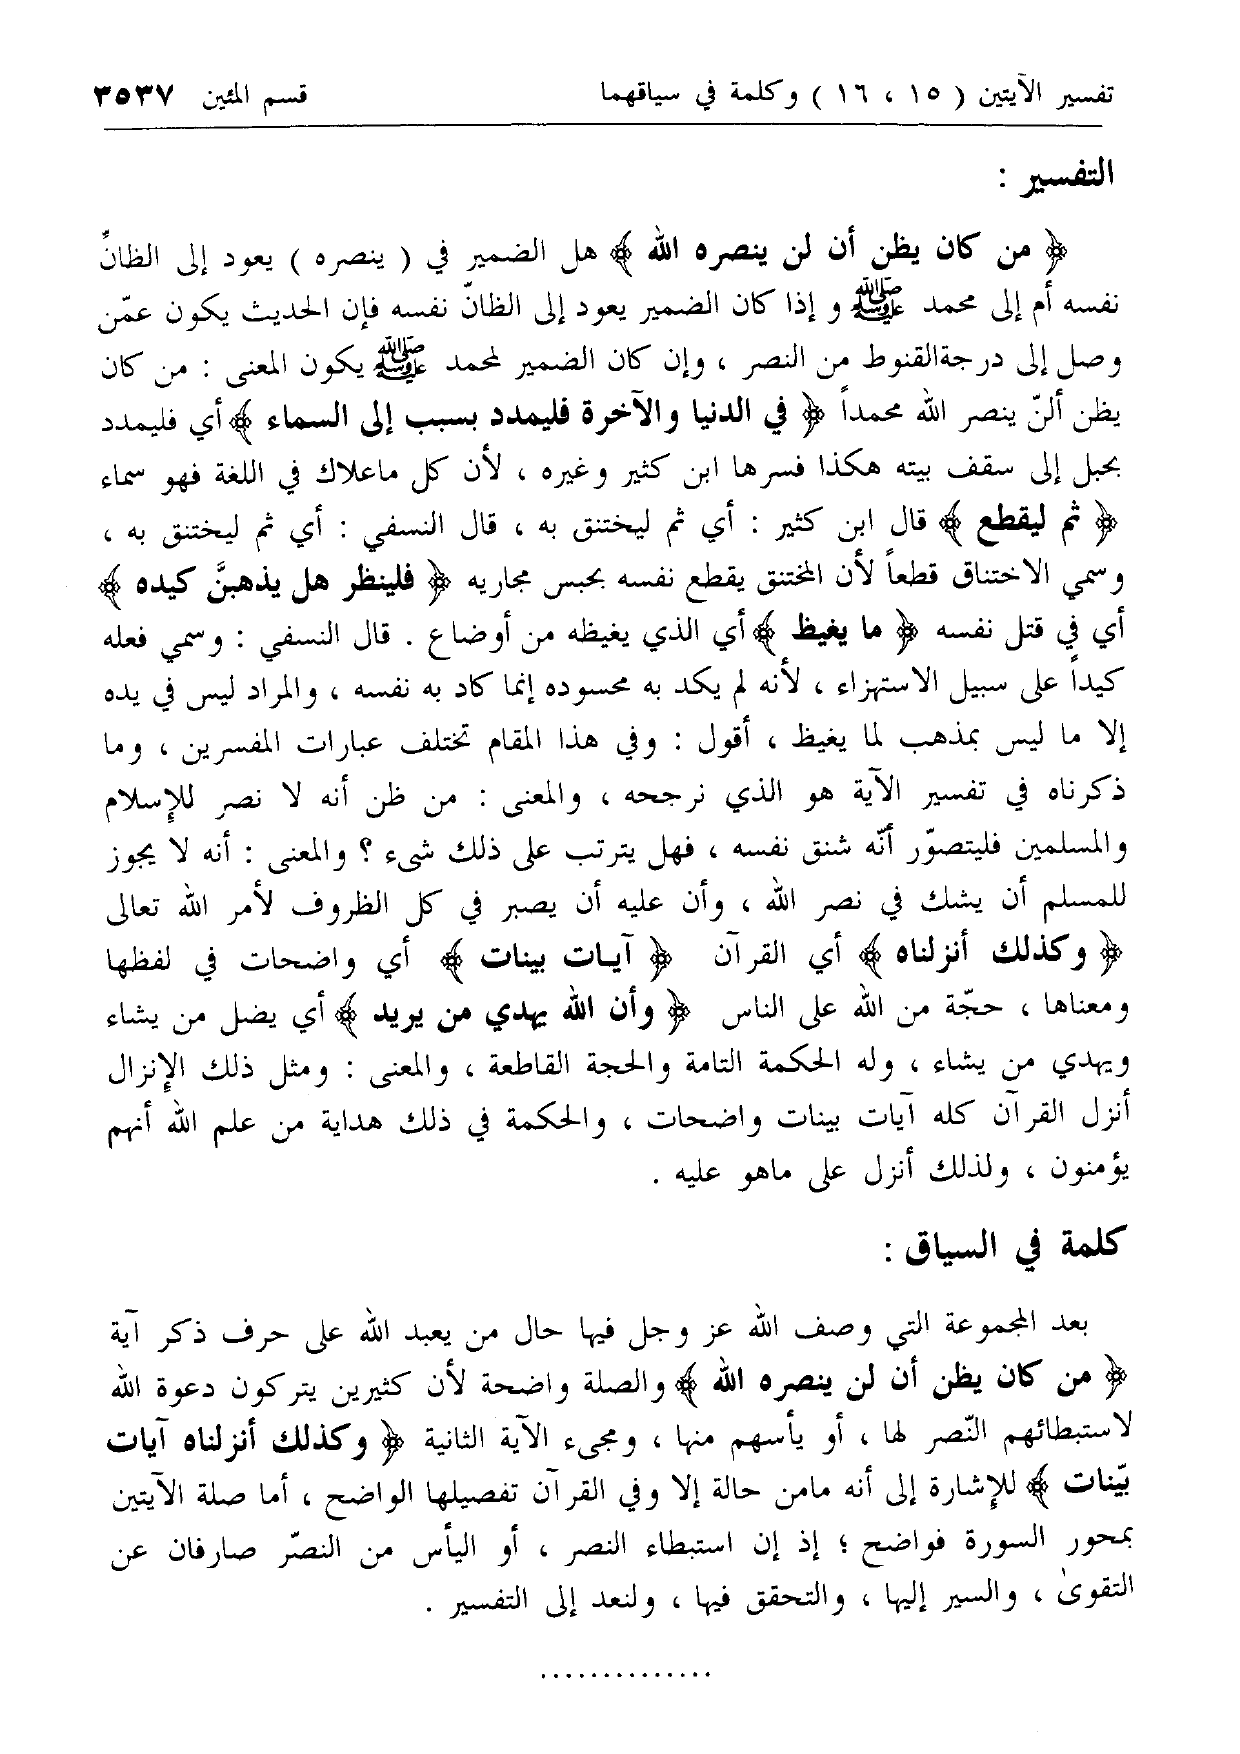 تفسير الآيتين ( ١٥ ، ١٦ ) وكلمة في سياقهما قسم المئين ٣٥٣٧
التفسير :
﴿ من كان يظن أن لن ينصره الله ﴾ هل الضمير في ( ينصره ) يعود إلى الظانِّ
نفسه أم إلى محمد ﷺ و إذا كان الضمير يعود إلى الظانّ نفسه فإن الحديث يكون عمّن
وصل إلى درجةالقنوط من النصر ، وإن كان الضمير لمحمد ﷺ يكون المعنى : من كان
يظن ألنّ ينصر الله محمداً ﴿ في الدنيا والآخرة فليمدد بسبب إلى السماء ﴾ أي فليمدد
بحبل إلى سقف بيته هكذا فسرها ابن كثير وغيره ، لأن كل ماعلاك في اللغة فهو سماء
﴿ ثم ليقطع ﴾ قال ابن كثير : أي ثم ليختنق به ، قال النسفي : أي ثم ليختنق به ،
وسمي الاختناق قطعاً لأن المختنق يقطع نفسه بحبس مجاريه ﴿ فلينظر هل يذهبنَّ كيده ﴾
أي في قتل نفسه ﴿ ما يغيظ ﴾ أي الذي يغيظه من أوضاع . قال النسفي : وسمي فعله
كيداً على سبيل الاستهزاء ، لأنه لم يكد به محسوده إنما كاد به نفسه ، والمراد ليس في يده
إلا ما ليس بمذهب لما يغيظ ، أقول : وفي هذا المقام تختلف عبارات المفسرين ، وما
ذكرناه في تفسير الآية هو الذي نرجحه ، والمعنى : من ظن أنه لا نصر للإسلام
والمسلمين فليتصوّر أنّه شنق نفسه ، فهل يترتب على ذلك شيء ؟ والمعنى : أنه لا يجوز
للمسلم أن يشك في نصر الله ، وأن عليه أن يصبر في كل الظروف لأمر الله تعالى
﴿ وكذلك أنزلناه ﴾ أي القرآن ﴿ آيات بينات ﴾ أي واضحات في لفظها
ومعناها ، حجّة من الله على الناس ﴿ وأن الله يهدي من يريد ﴾ أي يضل من يشاء
ويهدي من يشاء ، وله الحكمة التامة والحجة القاطعة ، والمعنى : ومثل ذلك الإنزال
أنزل القرآن كله آيات بينات واضحات ، والحكمة في ذلك هداية من علم الله أنهم
يؤمنون ، ولذلك أنزل على ماهو عليه .
كلمة في السياق :
بعد المجموعة التي وصف الله عز وجل فيها حال من يعبد الله على حرف ذكر آية
﴿ من كان يظن أن لن ينصره الله ﴾ والصلة واضحة لأن كثيرين يتركون دعوة الله
لاستبطائهم النّصر لها ، أو يأسهم منها ، ومجيء الآية الثانية ﴿ وكذلك أنزلناه آيات
بيّنات ﴾ للإشارة إلى أنه مامن حالة إلا وفي القرآن تفصيلها الواضح ، أما صلة الآيتين
بمحور السورة فواضح ؛ إذ إن استبطاء النصر ، أو اليأس من النصّر صارفان عن
التقوىٰ ، والسير إليها ، والتحقق فيها ، ولنعد إلى التفسير .
..............